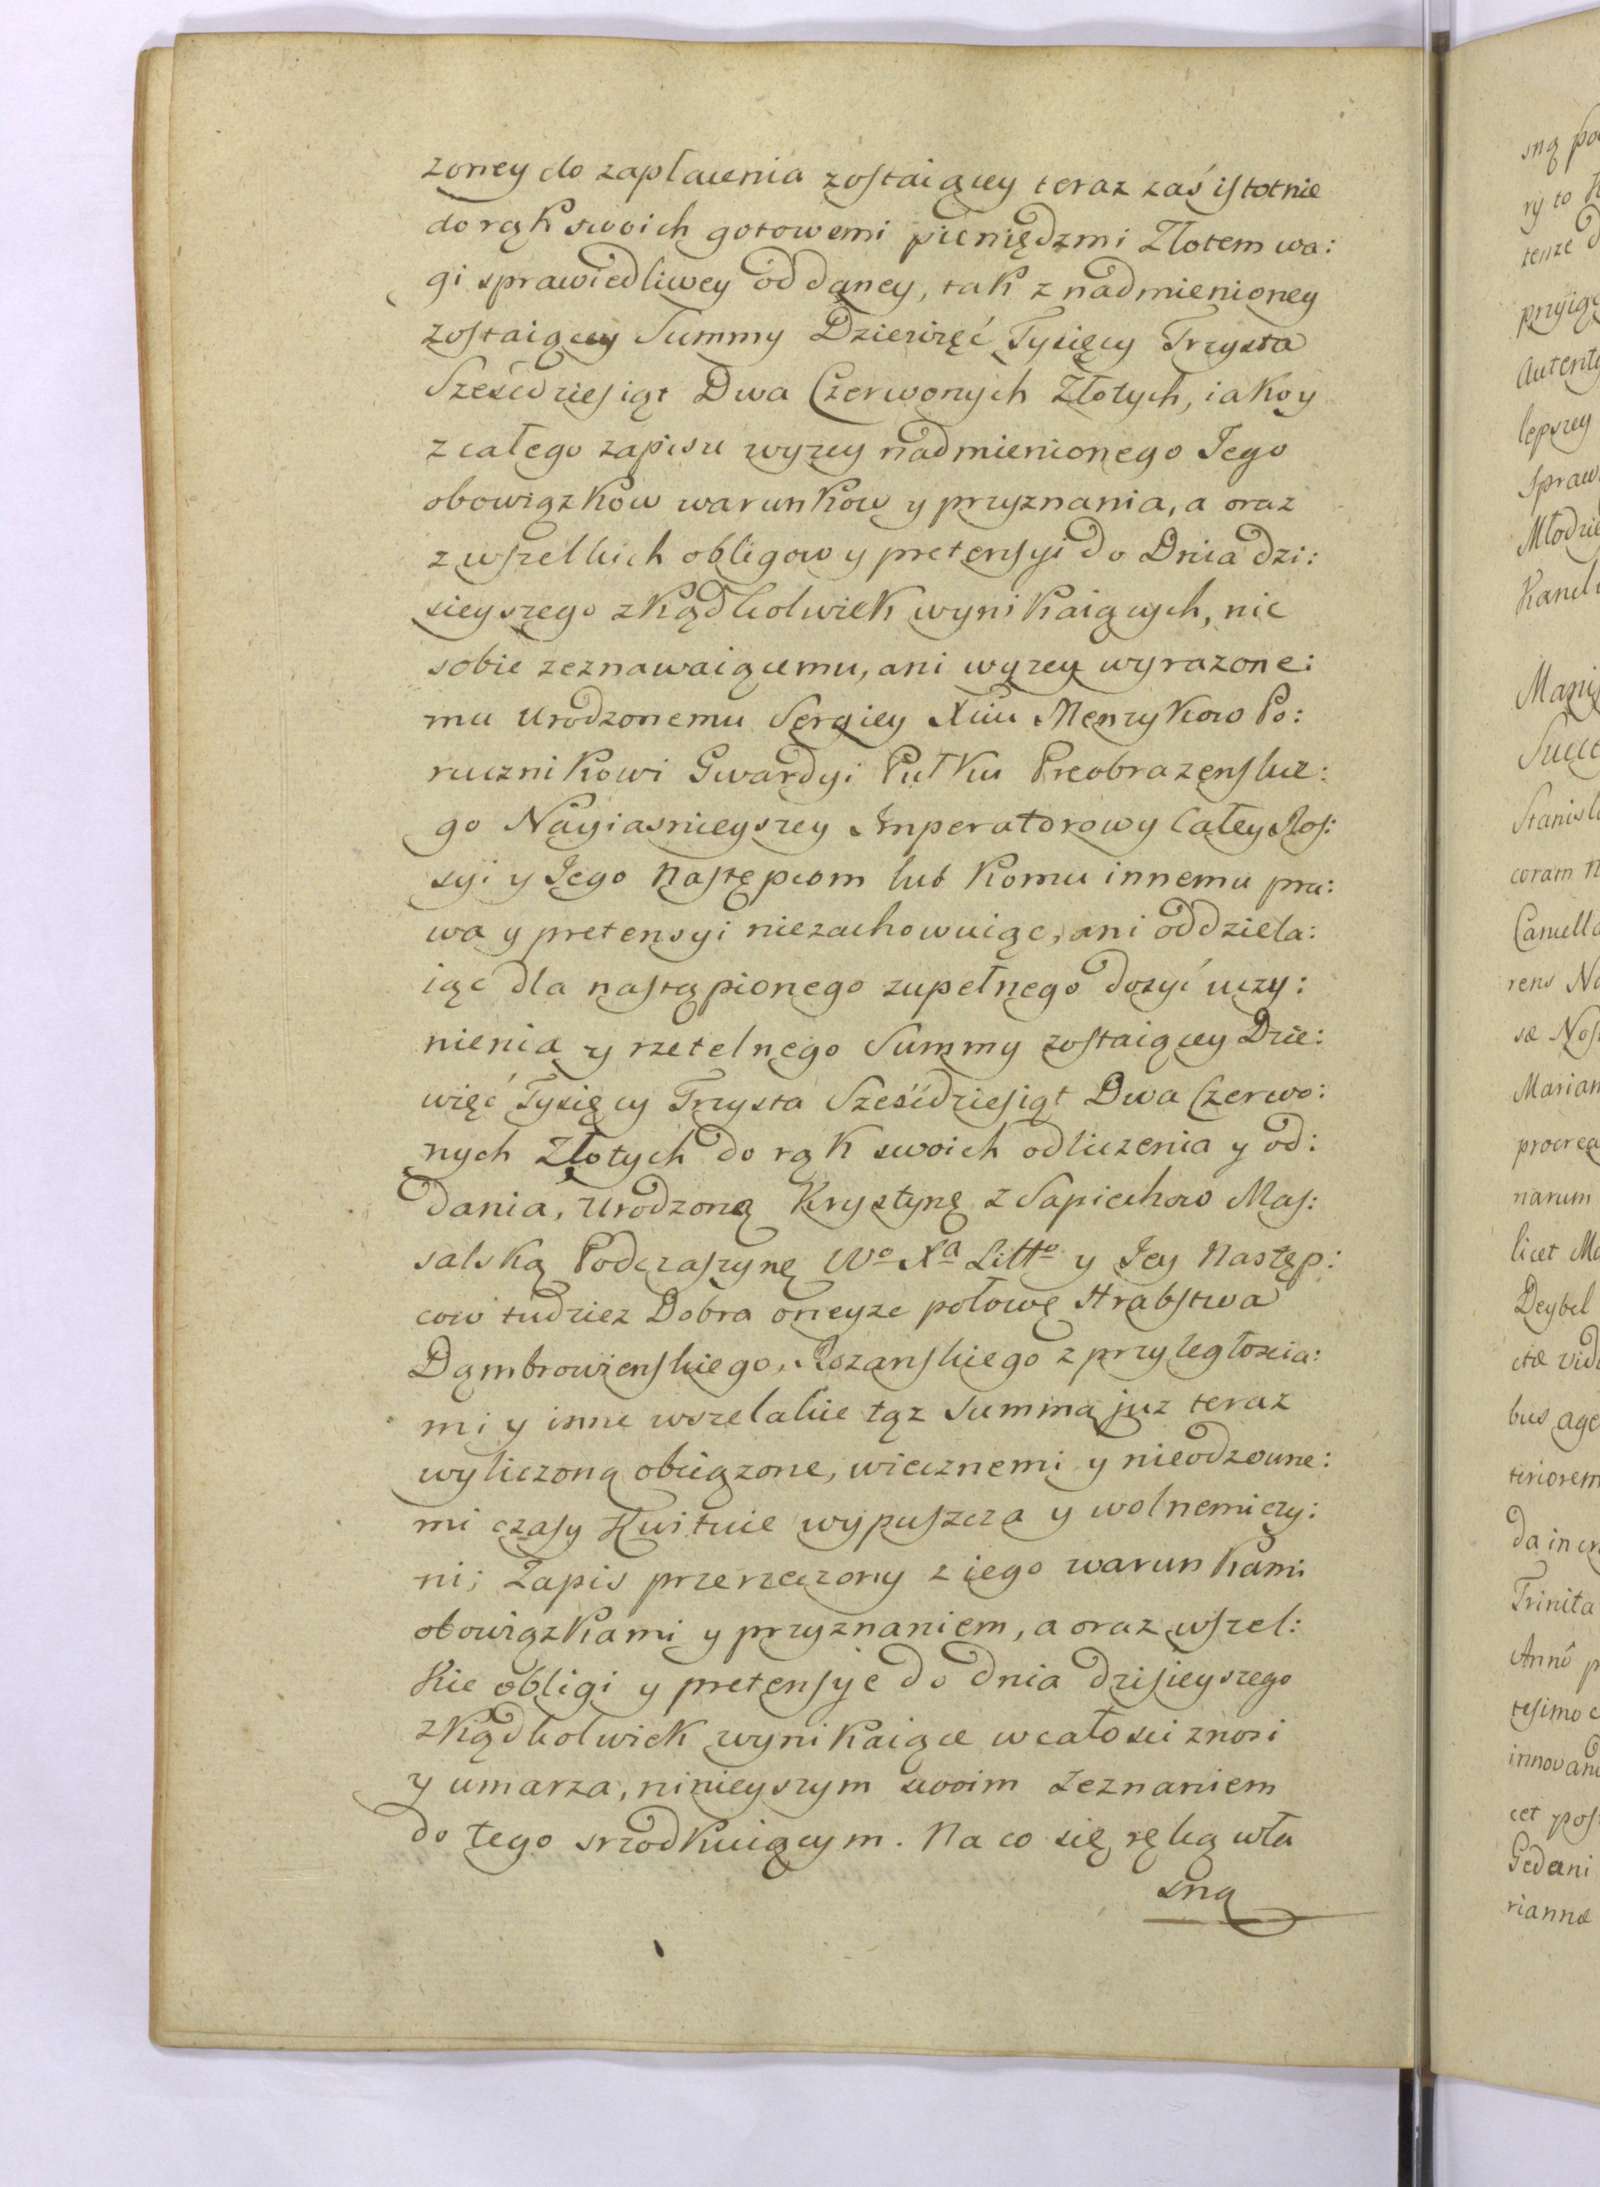 zoney do zapłacenia zostaiącey teraz zaś istotnie
do rąk swoich gotowemi pieniędzmi Złotem wa:
gi sprawiedliwey oddaney, tak z nadmienioney
zostaiącey Summy Dziewięć Tysięcy Trzysta
Sześćdziesiąt Dwa Czerwonych Złotych, iako y
z całego zapisu wyzey nadmienionego Jego
obowiązkow warunkow y przyznania, a oraz
z wszelkich obligow y pretensyi do Dnia dzi:
sieyszego zkądkolwiek wynikaiących, nic
sobie zeznawaiącemu, ani wyzey wyrazone:
mu Urodzonemu Sergiey Xciu Menzykow Po:
rucznikowi Gwardyi Pułku Preobrazenskie:
go Nayiasnieyszey Imperatorowy Całey Ros:
syi y Jego Następcom lub Komu innemu pra:
wa y pretensyi niezachowuiąc, ani oddziela:
iąc dla nastąpionego zupełnego dosyć uczy:
nienia y rzetelnego Summy zostaiącey Dzie:
więć Tysięcy Trzysta Sześćdziesiąt Dwa Czerwo:
nych Złotych do rąk swoich odliczenia y od:
dania, Urodzoną Krystynę z Sapiechow Mas:
salską Podczaszynę Wo Xa Litto y Jey Następ:
cow tudziez Dobra oneyze połowę Hrabstwa
Dąmbrowienskiego, Rozanskiego z przyległoscia:
mi y inne wszelakie tąz Summą juz teraz
wyliczoną obciązone, wiecznemi y nieodzowne:
mi czasy Kwituie wypuszcza y wolnemi czy:
ni; Zapis przerzeczony z iego warunkami
obowiązkami y przyznaniem, a oraz wszel:
kie obligi y pretensye do dnia dzisieyszego
zkądkolwiek wynikaiące w całosci znosi
y umarza, ninieyszym swoim Zeznaniem
do tego srzodkuiącym. Na co się ręką wła
sną